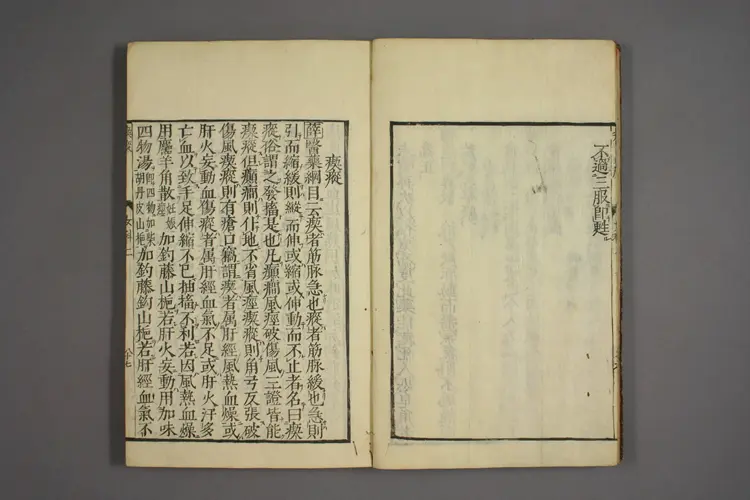 不過三服即甦
瘈瘲
薛醫藥綱目云瘈者筋脉急也瘲者筋脉緩也急則
引而縮緩則縱而伸或縮或伸動而不止者名曰瘈
瘲俗謂之發搐是也凡癲癇風痙破傷風三證皆能
瘈瘲但癲癇則仆地不省風痙瘈瘲則角弓反張破
傷風瘈瘲則有瘡口竊謂瘈者属肝經風熱血燥或
肝火妄動血傷瘲者属肝經血氣不足或肝火汗多
亡血以致手足伸縮不已抽搐不利若因風熱血燥
用羚羊角散加鈎藤山梔若肝火妄動用加味
四物湯即四物加柴胡丹皮山梔加鈎藤鈎山梔若肝經血氣不
女科二